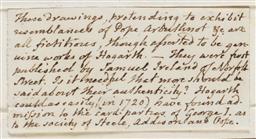 These drawings, pretending to exhibit
resemblances of Pope Arbuthnot &c are
all fictitious, though asserted to be gen-
uine works of Hogarth. They were first
published by Samuel Ireland of Norfolk
Street. Is it needful that more should be
said about their authenticity? Hogarth
could as easily, (in 1720) have found ad-
mission to the card-parties of George I. as
to the society of Steele, Addison and Pope.